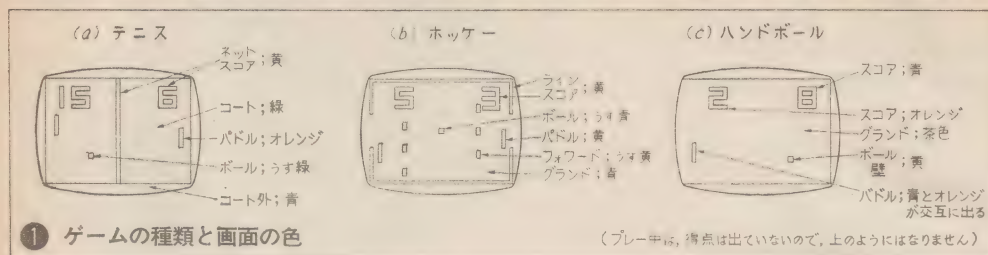 (a) テニス
15
6
ネット
スコア ; 黄
コート ; 緑
パドル ; オレンジ
ボール ; うす緑
コート外 ; 青
(b) ホッケー
5
3
ライン
スコア ; 黄
ボール ; うす青
パドル ; 黄
フォワード ; うす黄
グランド ; 青
(c) ハンドボール
2
8
スコア ; 青
スコア ; オレンジ
グランド ; 茶色
ボール
壁 ; 黄
パドル ; 青とオレンジ
が交互に出る
❶ ゲームの種類と画面の色
(プレー中は, 得点は出ていないので, 上のようにはなりません)